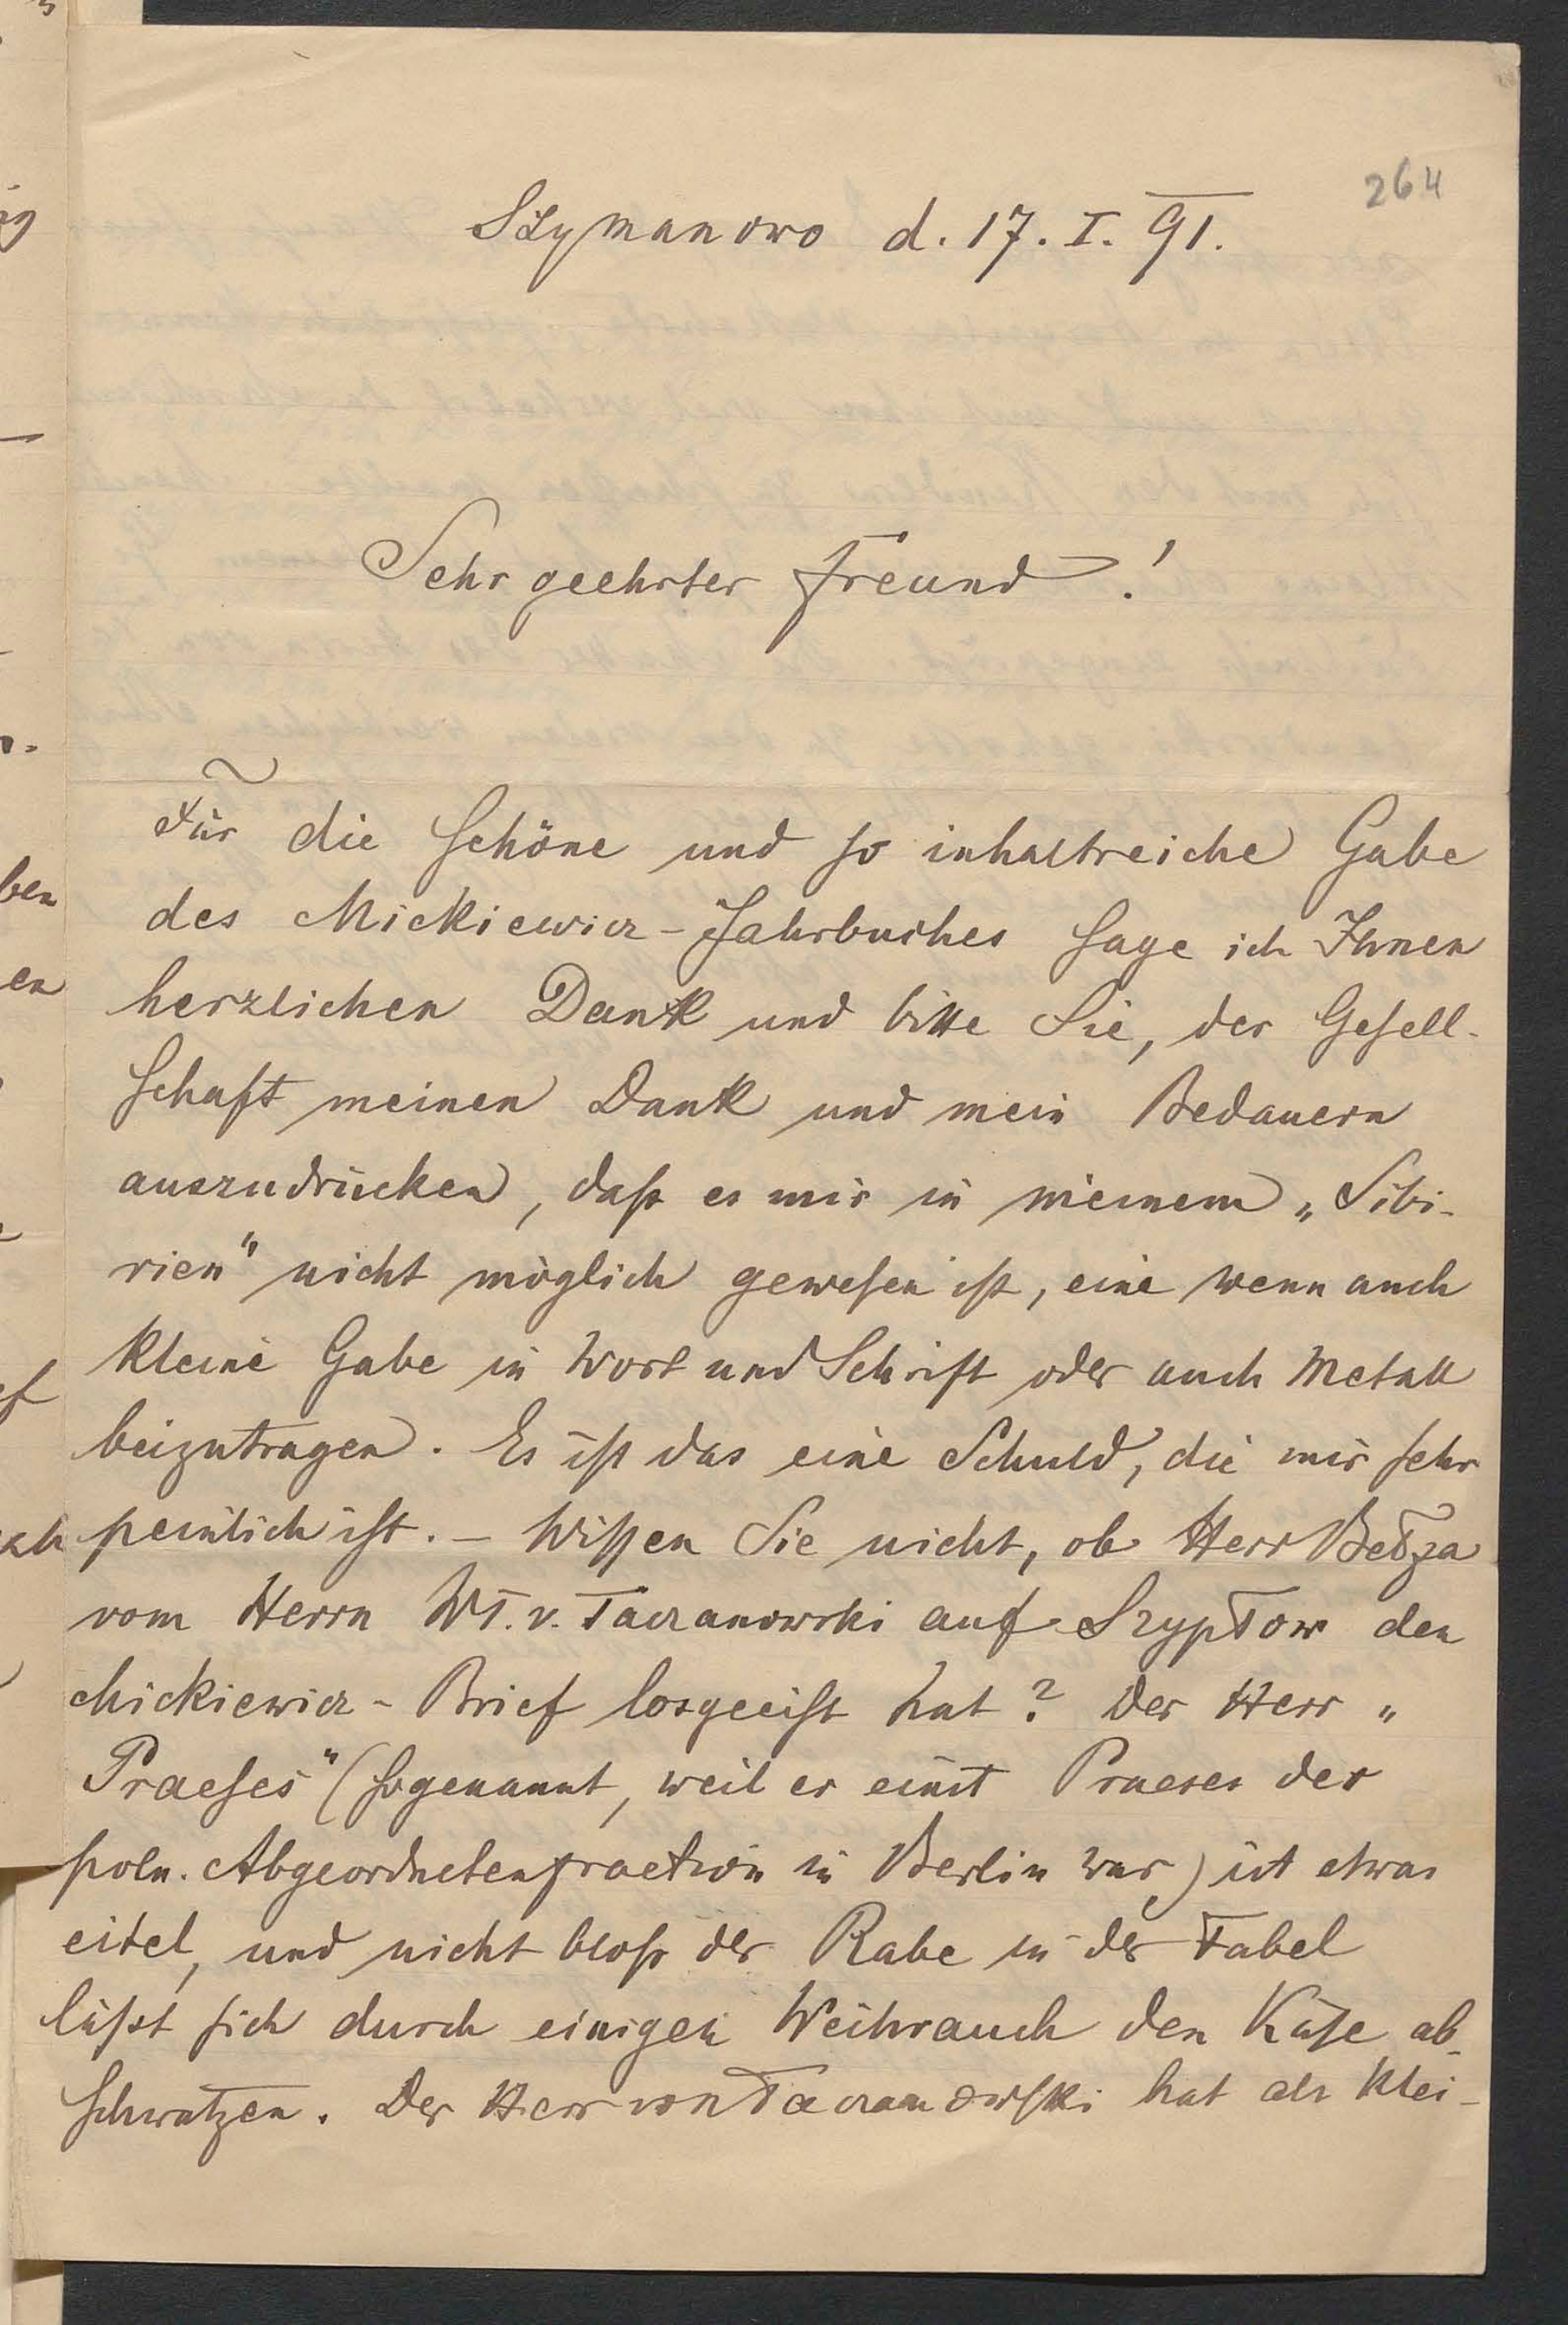 264
Szymanowo d. 17. I. 91.
Sehr geehrter Freund!
Für die schöne und so inhaltreiche Gabe
des Mickiewicz-Jahrbuches sage ich Ihnen
herzlichen Dank und bitte Sie, der Gesell-
schaft meinen Dank und mein Bedauern
auszudrücken, daß es mir in meinem „Sibi-
rien" nicht möglich gewesen ist, eine wenn auch
kleine Gabe in Wort und Schrift oder auch Metall
beizutragen. Es ist das eine Schuld, die mir sehr
peinlich ist. – Wissen Sie nicht, ob Herr Bełza
vom Herrn Wł. v. Taczanowski auf Szypłow den
Mickiewicz-Brief losgeeist hat? Der Herr „
Praeses" (sogenannt, weil er einst Praeses der
poln. Abgeordnetenfraction in Berlin war) ist etwas
eitel, und nicht bloß der Rabe in der Fabel
läßt sich durch einigen Weihrauch den Käse ab-
schwatzen. Der Herr von Taczanowski hat als Klei-